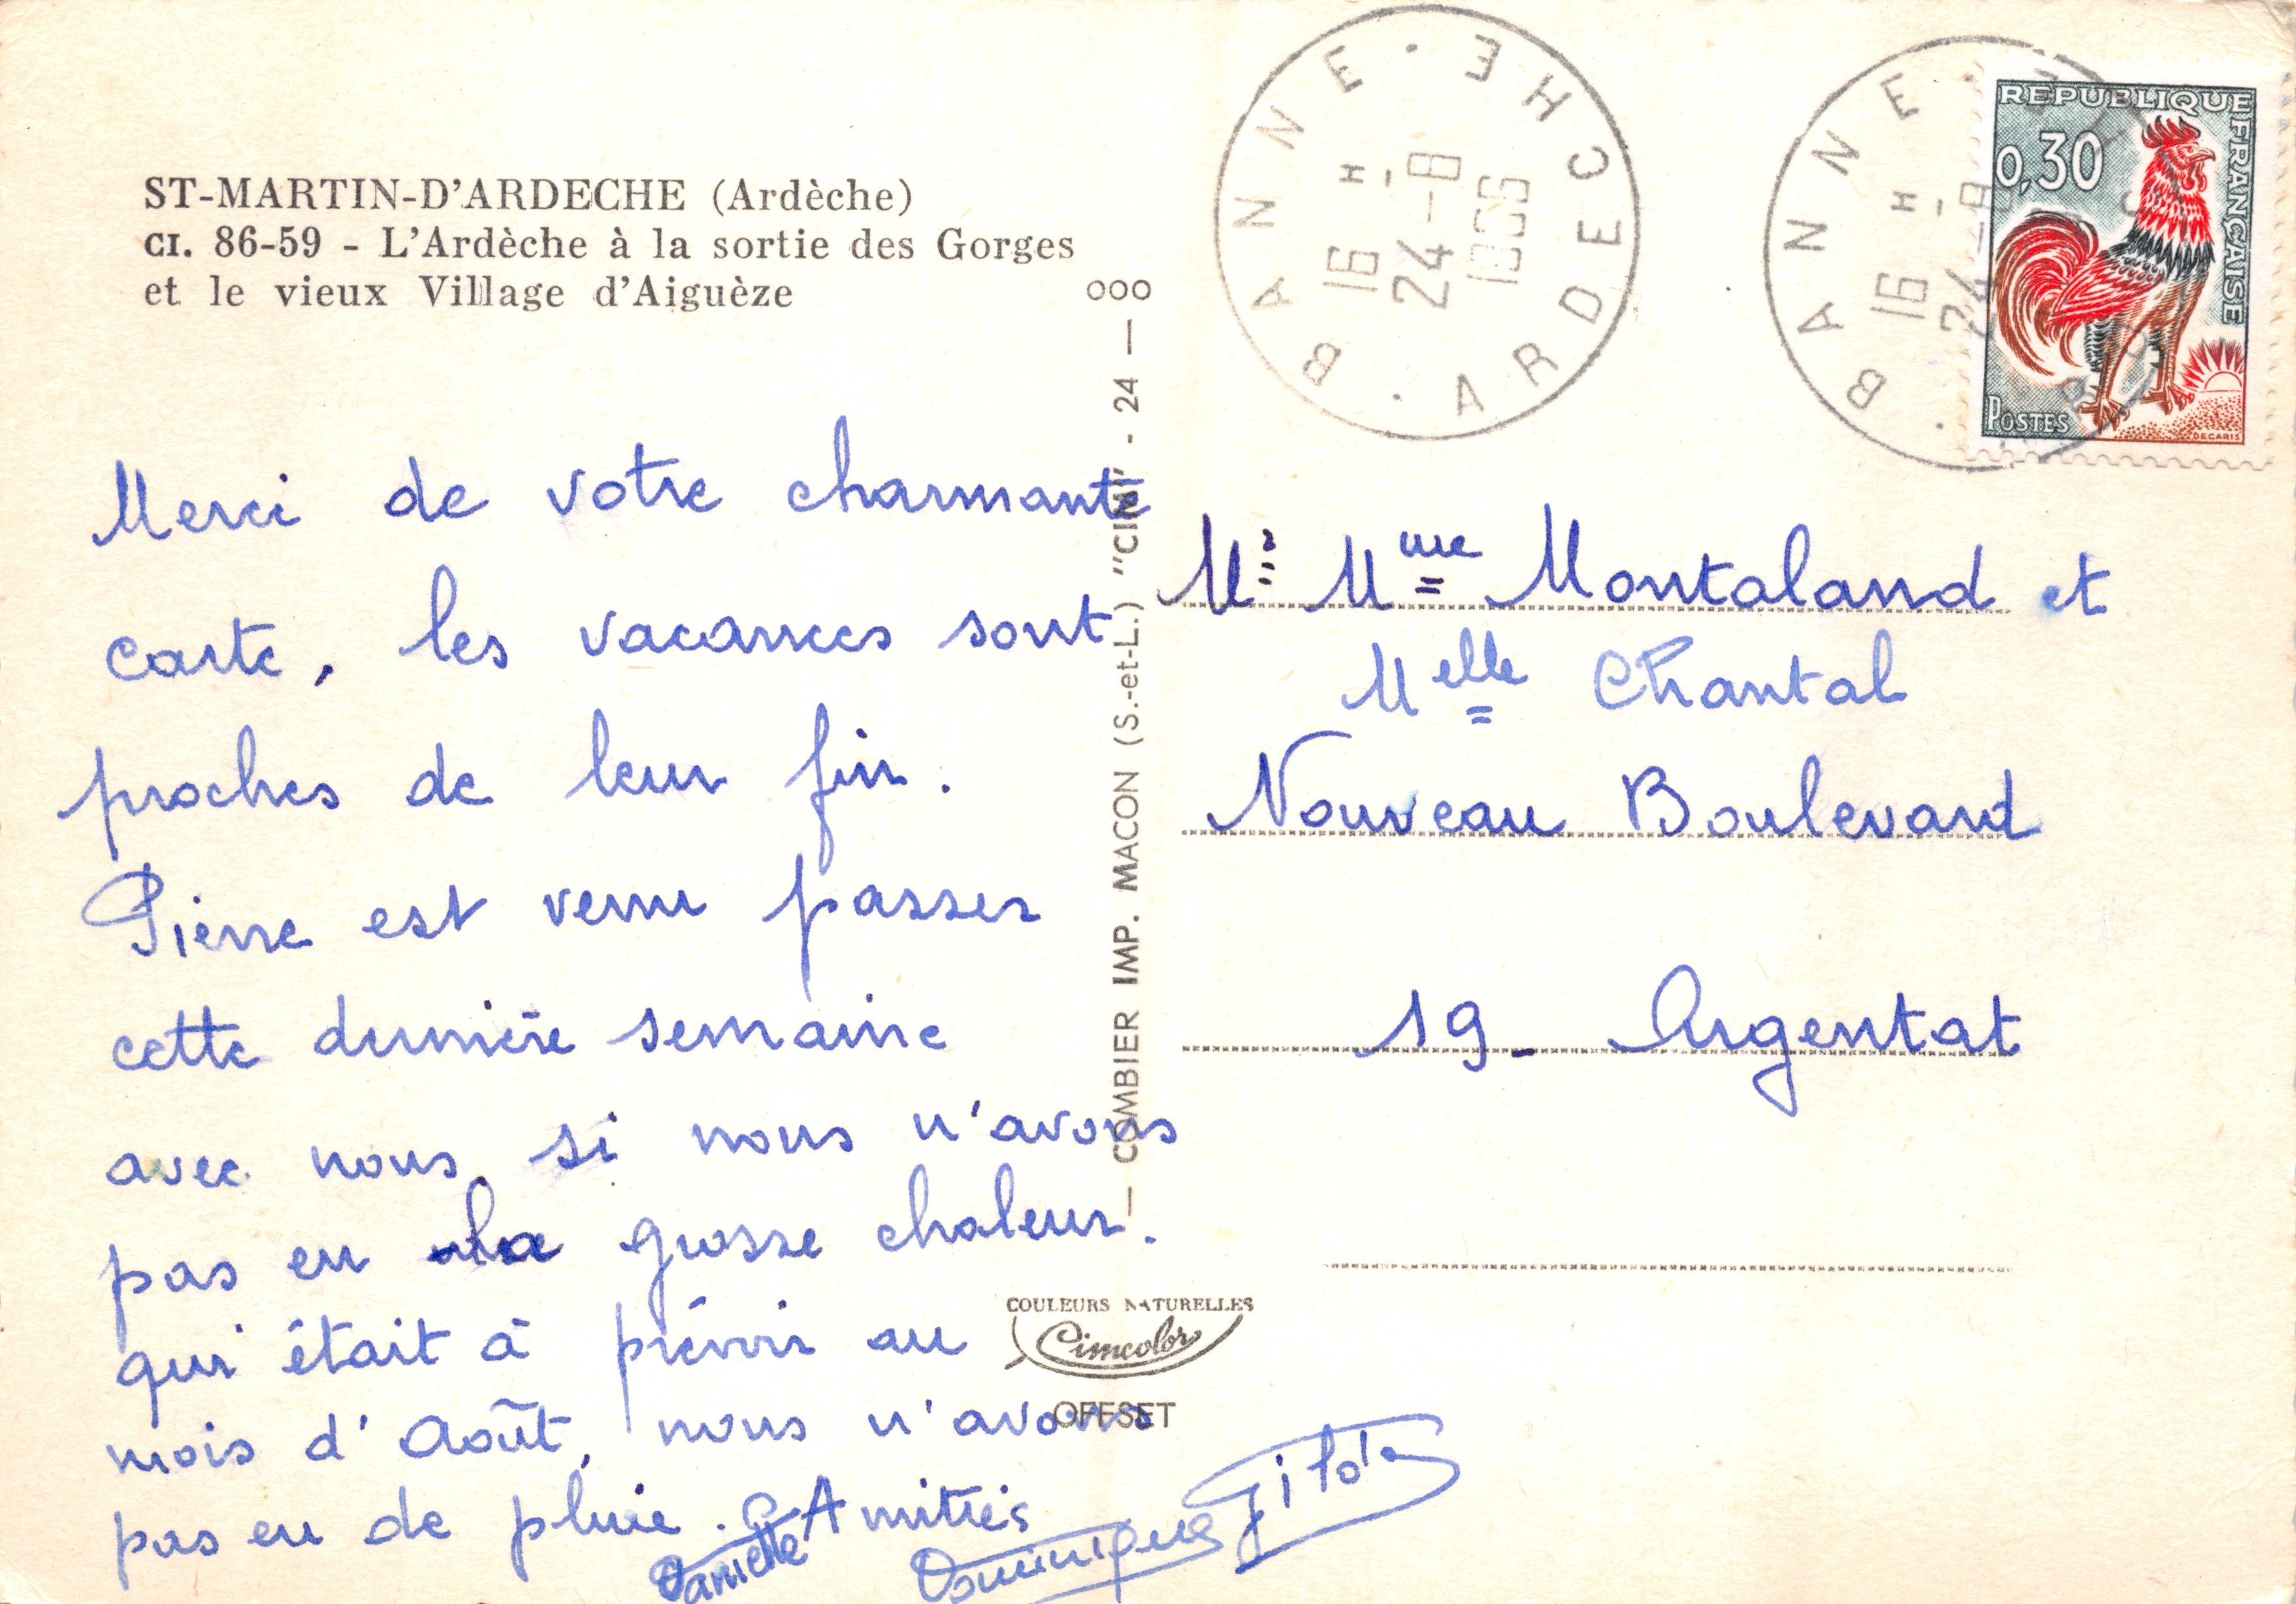 ST-MARTIN-D'ARDECHE (Ardèche)
CI. 86-59 - L'Ardèche à la sortie des Gorges
et le vieux Village d'Aiguèze
Merci de votre charmante
carte, les vacances sont
proches de leur fin.
Pierre est venu passer
cette dernière semaine
avec nous, si nous n'avons
pas eu la grosse chaleur.
qui était à prévoir au
mois d'Août, nous n'avons
pas eu de pluie. Amitiés
Danielle
Dominique
COMBIER IMP. MACON (S.-et-L.) "CIM" - 24 — ooo
COULEURS NATURELLES
Cimcolor
OFFSET
BANNE · ARDECHE ·
16 H
24-8
BANNE
16 H
24-8
REPUBLIQUE FRANÇAISE
0,30
POSTES
DECARIS
Mr Mme Montaland et
Melle Chantal
Nouveau Boulevard
19 - Argentat